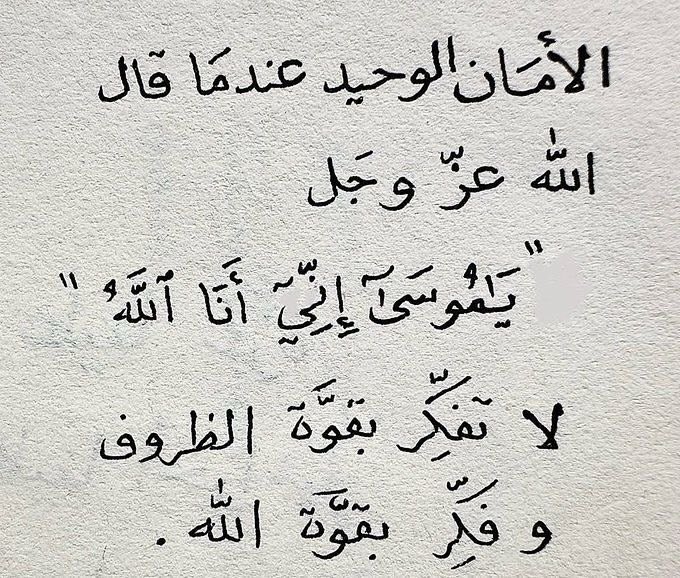 الأمَان الوحيد عندمَا قال
الله عزّ وجَل
"يَـٰمُوسَىٰٓ إِنِّيٓ أَنَا ٱللَّهُ"
لا تفكِّر بقوَّة الظروف
و فكِّر بقوَّة الله .